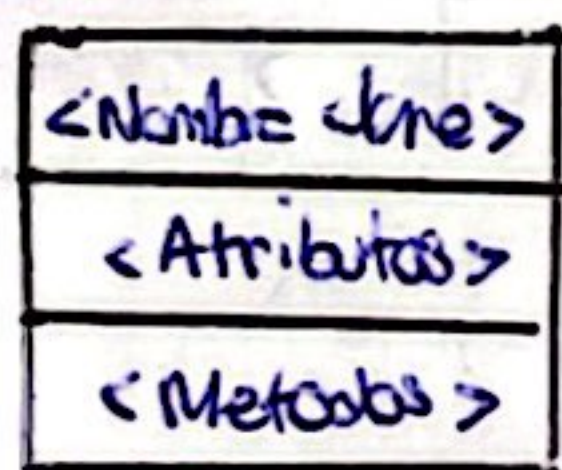 <Nombre >
<Atributos>
<Metodos>